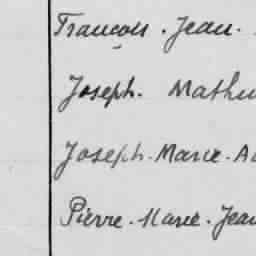 François. Jean.
Joseph. Mathu
Joseph. Marie. A
Pierre. Marie. Jean